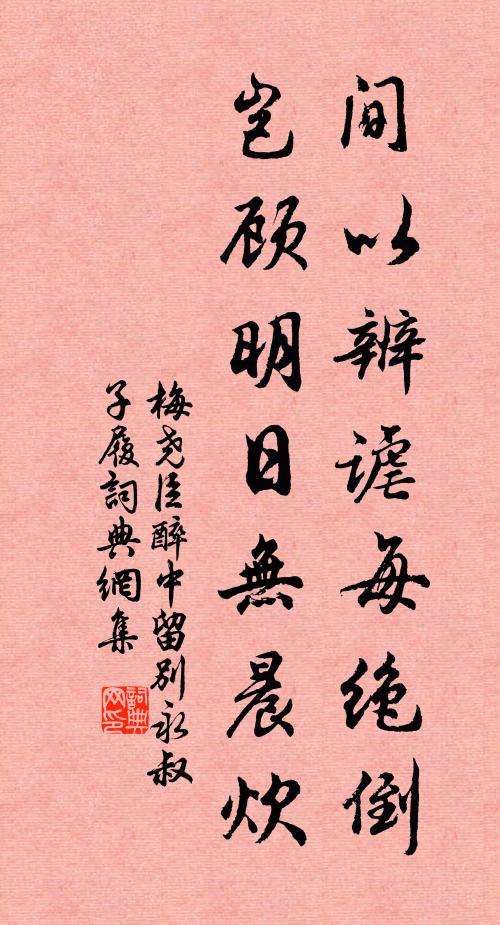 间以辨谑每绝倒
岂顾明日無晨炊
梅尧臣醉中留别永叔
子履詞典網集
詞典
网印